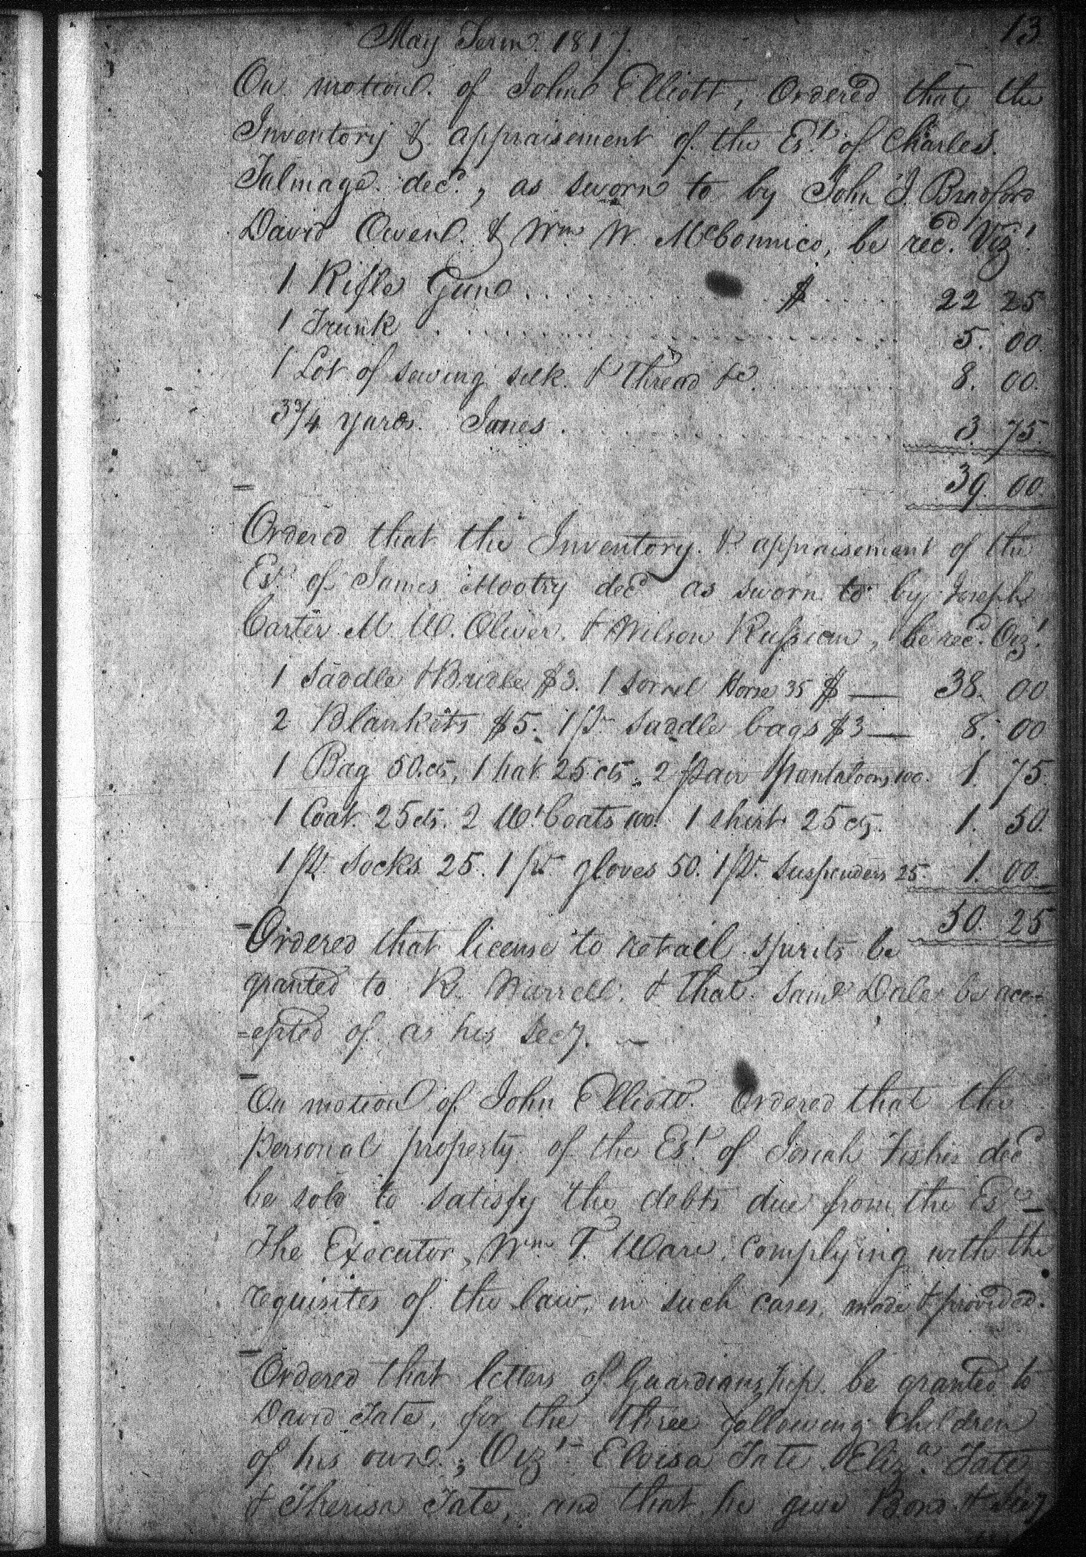 13
May Term. 1817.
On motion. of John Elliott, Ordered that the
Inventory & appraisement of the Est. of Charles.
Talmage. decd., as sworn to by John J. Bradford
David Owen. & Wm W. McConnico, be recd. Vizt.
1 Rifle Gun . . . $ . . . 22 25
1 Trunk . . . 5. 00
1 Lot of sewing silk. & thread &c. . . . 8. 00.
3 3/4 yards. Janes . . . 3 75
39. 00.
Ordered that the Inventory. & appraisement of the
Est. of James Mootry decd as sworn to by Joseph
Carter. M. W. Oliver. & Wilson Russian, be recd. Vizt.
1 Saddle & Bridle $3. 1 sorrel Horse 35 $ — 38. 00
2 Blankets $5. 1 pr. saddle bags $3 — 8. 00
1 Bag 50.cts, 1 hat 25 cts. 2 pair pantaloons 100. 1. 75.
1 Coat. 25 cts. 2 Wt. Coats 100. 1 shirt 25 cts. 1. 50.
1 pr. socks. 25. 1 pr. gloves 50. 1 pr. suspenders 25. 1. 00.
50. 25
Ordered that license to retail spirits be
granted to R. Warrell. & that. Saml Dale be acc=
=epted of as his Secy. —
On motion of John Elliott. Ordered that the
personal property. of the Est. of Josiah Fisher decd
be sold to satisfy the debts due from the Este —
The Executor, Wm T. Ware, complying with the
requisites of the law, in such cases, made & provided.
Ordered that letters of Guardianship. be granted to
David Tate, for the three following children
of his own.; Vizt. Eloisa Tate. Eliza. Tate
& Therisa Tate, and that he give Bond & Secy